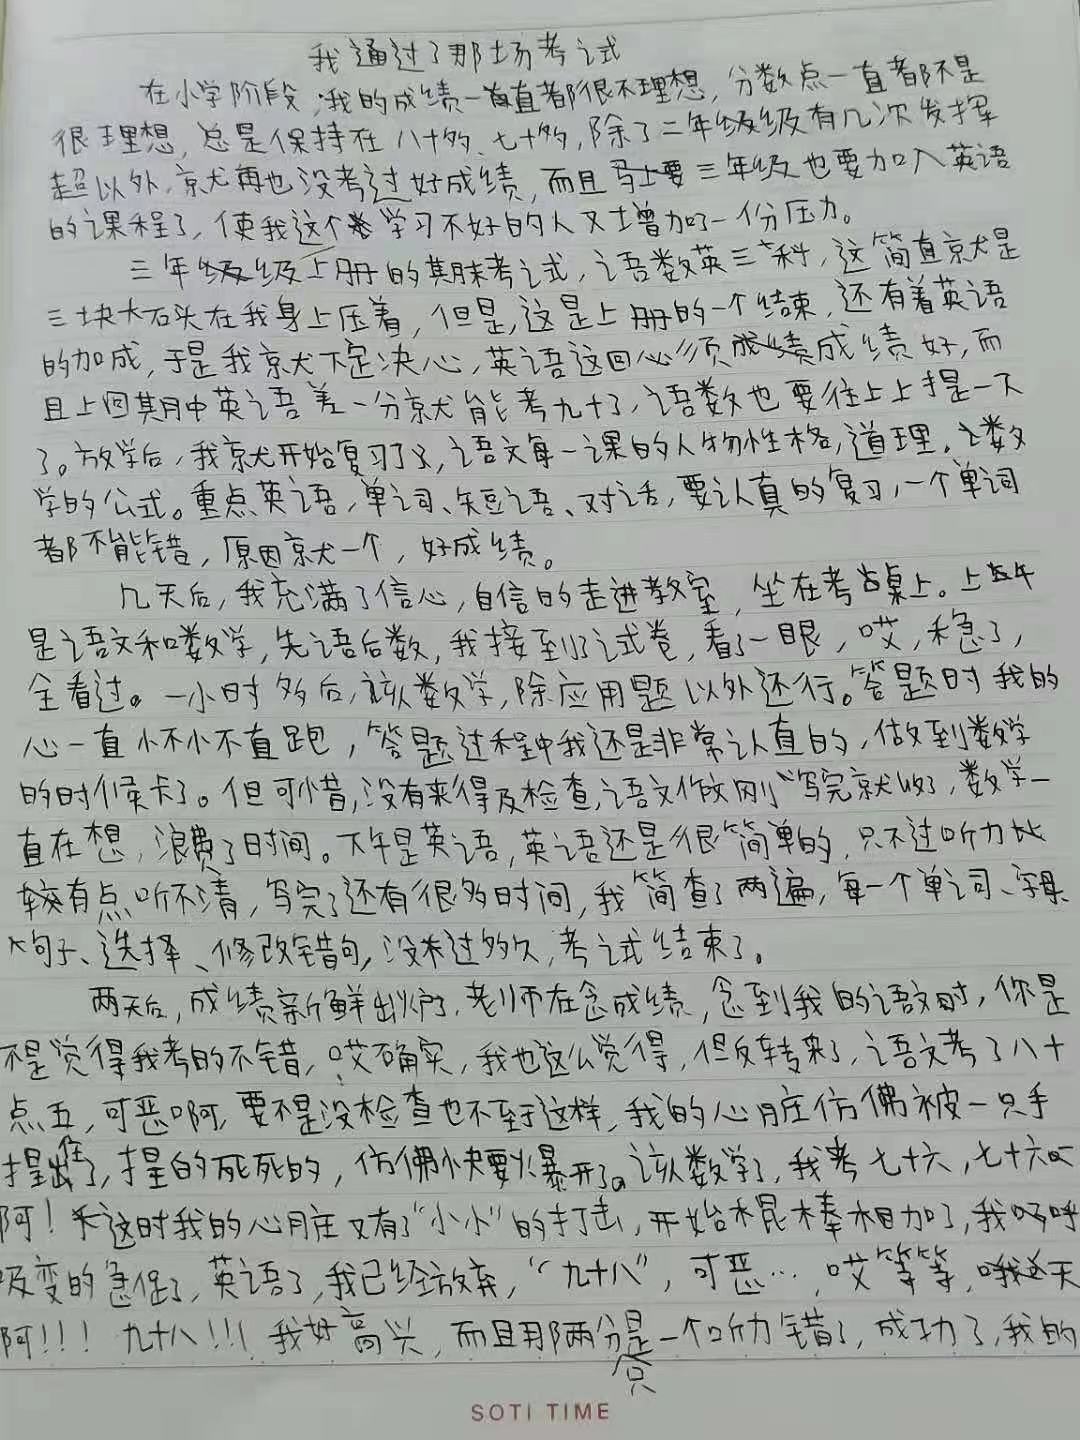 我通过了那场考试
在小学阶段,我的成绩一直都很不理想,分数点一直都不是
很理想,总是保持在八十多、七十多,除了二年级级有几次发挥
超以外,就再也没考过好成绩,而且马上要三年级也要加入英语
的课程了,使我这个学习不好的人又增加了一份压力。
三年级级上册的期末考试,语数英三科,这简直就是
三块大石头在我身上压着,但是,这是上册的一个结束,还有着英语
的加成,于是我就下定决心,英语这回必须成绩好,而
且上回期中英语差一分就能考九十了,语数也要往上上提一下
了。放学后,我就开始复习了,语文每一课的人物性格,道理,数
学的公式。重点英语,单词、短语、对话,要认真的复习,一个单词
都不能错,原因就一个,好成绩。
几天后,我充满了信心,自信的走进教室,坐在考桌上。上午
是语文和数学,先语后数,我接到了试卷,看了一眼,哎,稳了,
全看过。一小时多后,该数学,除应用题以外还行。答题时我的
心一直怦怦直跑,答题过程中我还是非常认真的,做到数学
的时候卡了。但可惜,没有来得及检查,语文作文刚写完就收了,数学一
直在想,浪费了时间。下午是英语,英语还是很简单的,只不过听力比
较有点听不清,写完了还有很多时间,我简查了两遍,每一个单词、字母
句子、选择、修改错句,没过多久,考试结束了。
两天后,成绩新鲜出炉了,老师在念成绩,念到我的语文时,你是
不是觉得我考的不错,哎确实,我也这么觉得,但反转来了,语文考了八十
点五,可恶啊,要不是没检查也不至于这样,我的心脏仿佛被一只手
捏住了,捏的死死的,仿佛快要爆开了。该数学了,我考七十六,七十六
啊!这时我的心脏又有了“小小”的打击,开始棍棒相加了,我呼
吸变的急促了,英语了,我已经放弃,“九十八”,可恶…,哎等等,天
啊!!!九十八!!!我好高兴,而且那两分只是一个听力错了,成功了,我的
SOTI TIME